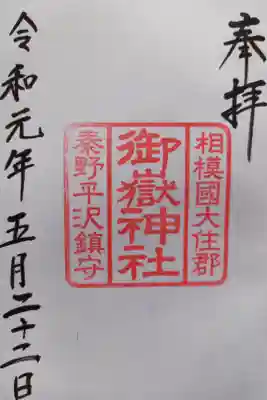 奉拝
相模國大住郡
御嶽神社
秦野平沢鎮守
令和元年五月二十二日